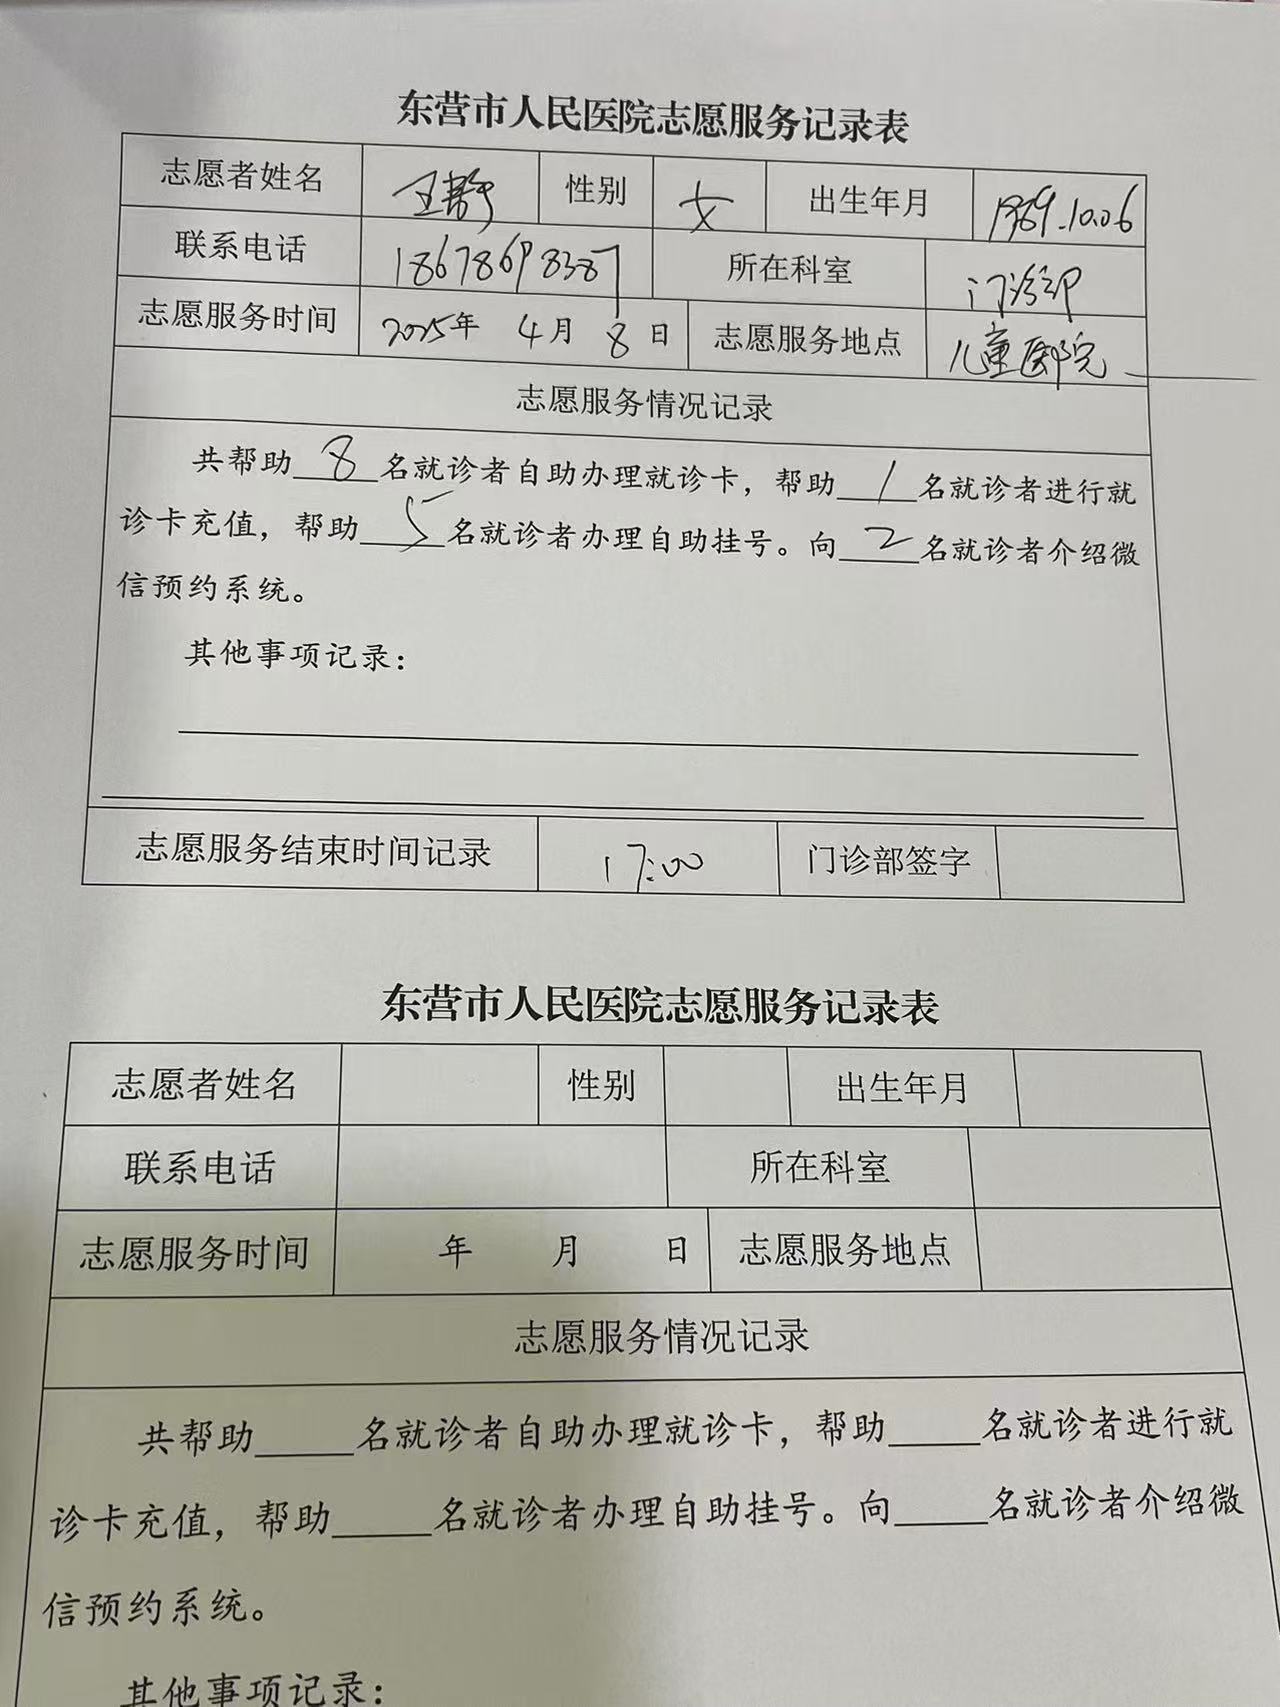 东营市人民医院志愿服务记录表
志愿者姓名 王静 性别 女 出生年月 1969.10.06
联系电话 18678698387 所在科室 门诊部
志愿服务时间 2025年 4月 8日 志愿服务地点 儿童医院
志愿服务情况记录
共帮助 8 名就诊者自助办理就诊卡，帮助 1 名就诊者进行就
诊卡充值，帮助 5 名就诊者办理自助挂号。向 2 名就诊者介绍微
信预约系统。
其他事项记录：
志愿服务结束时间记录 17:00 门诊部签字
东营市人民医院志愿服务记录表
志愿者姓名 性别 出生年月
联系电话 所在科室
志愿服务时间 年 月 日 志愿服务地点
志愿服务情况记录
共帮助_____名就诊者自助办理就诊卡，帮助_____名就诊者进行就
诊卡充值，帮助_____名就诊者办理自助挂号。向_____名就诊者介绍微
信预约系统。
其他事项记录：